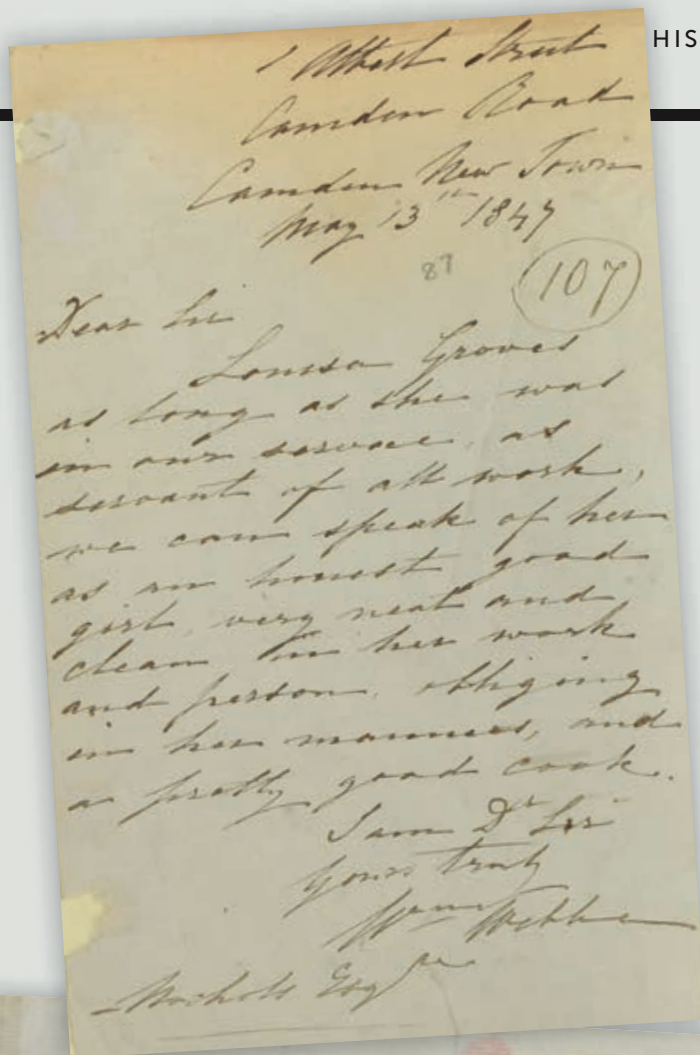 HIS
1 Albert Street
Camden Road
Camden New Town
May 13th 1847
87
107
Dear Sir
Louisa Groves
as long as she was
in our service, as
servant of all work,
we can speak of her
as an honest good
girl, very neat and
clean in her work
and person, obliging
in her manners, and
a pretty good cook.
I am Dr Sir
Yours truly
Wm Webbe
Nichols Esqre